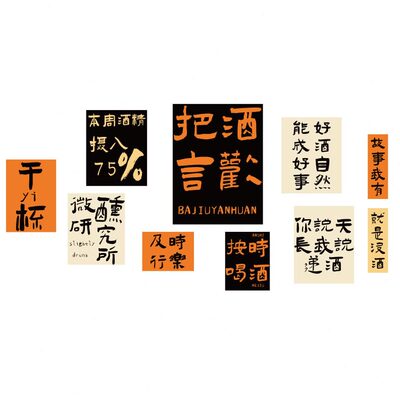 干
yi
杯
本周酒精
摄八
75%
微醺
研究所
slightly
drunk
把酒
言歡
BAJIUYANHUAN
及時
行樂
按時
喝酒
好酒自然
能成好事
你說天說
長我遞酒
故事我有
就是沒酒